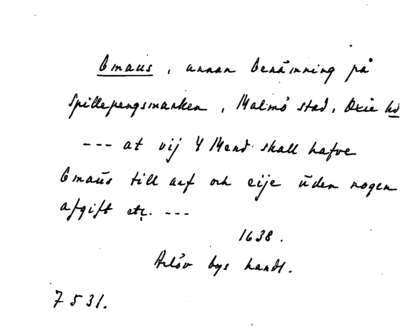 Emaus, annan benämning på
Spillepengsmarken, Malmö stad, Oxie hd
--- at vij 4 Mend skall hafve
Emaus till arf och eije uden nogen
afgift etc. ---
1638.
Arlöv bys handl.
7531.